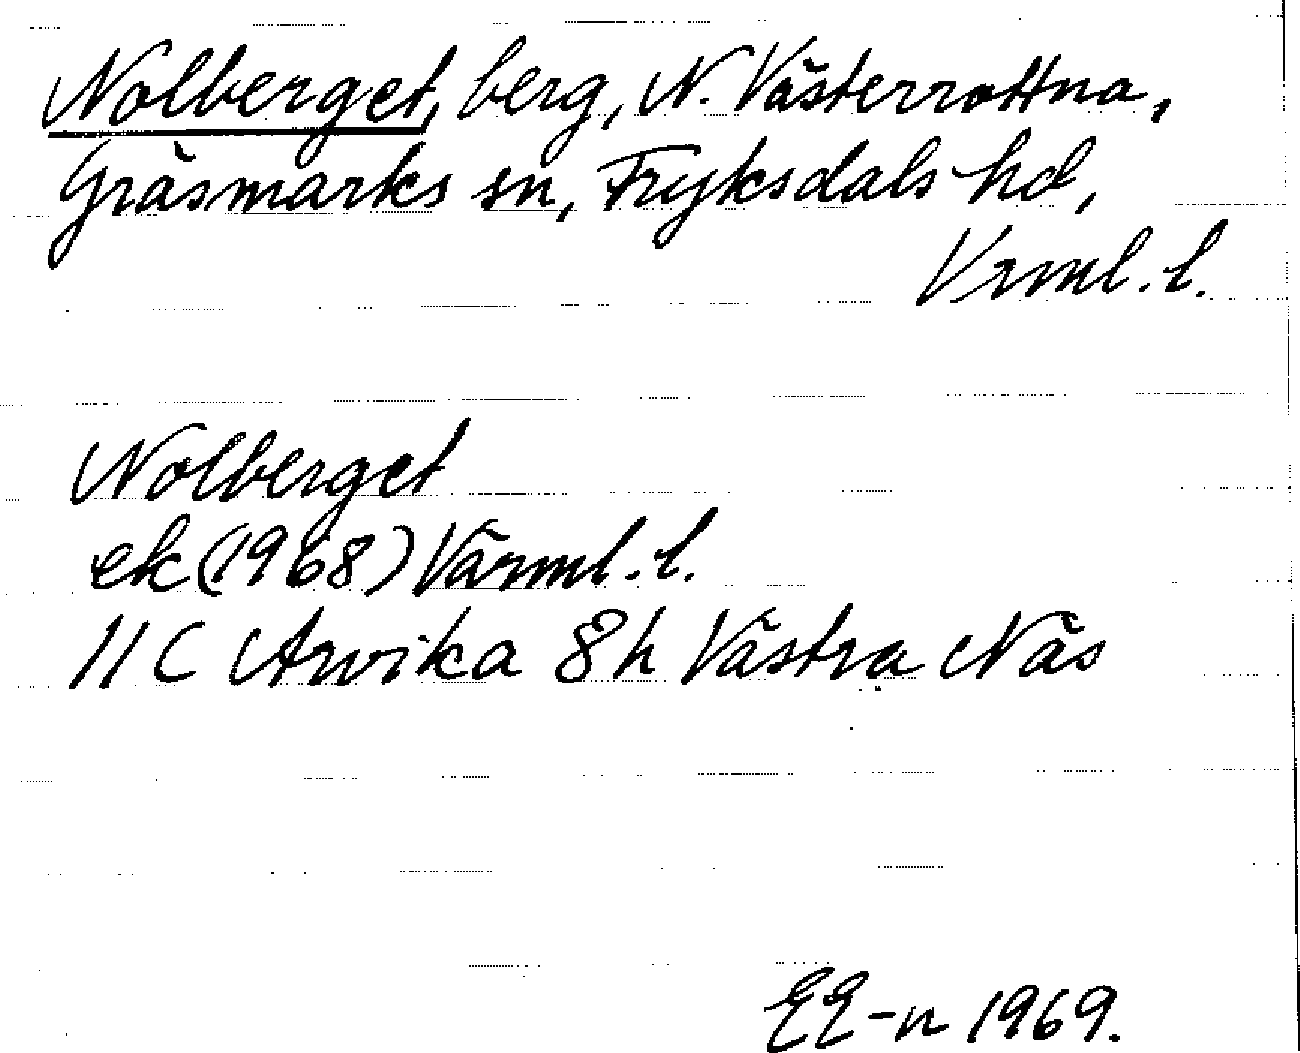 Nolberget, berg, N. Västerrottna,
Gräsmarks sn, Fryksdals hd,
Vrml. l.
Nolberget
ek (1968) Värml. l.
11 C Arvika 8h Västra Näs
EE-n 1969.